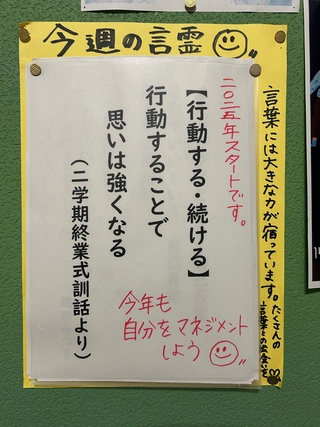 今週の言霊
言葉には大きな力が宿っています。たくさんの
言葉との出会いを♡
二〇二五年スタートです。
【行動する・続ける】
行動することで
思いは強くなる
(二学期終業式訓話より)
今年も
自分をマネジメント
しよう